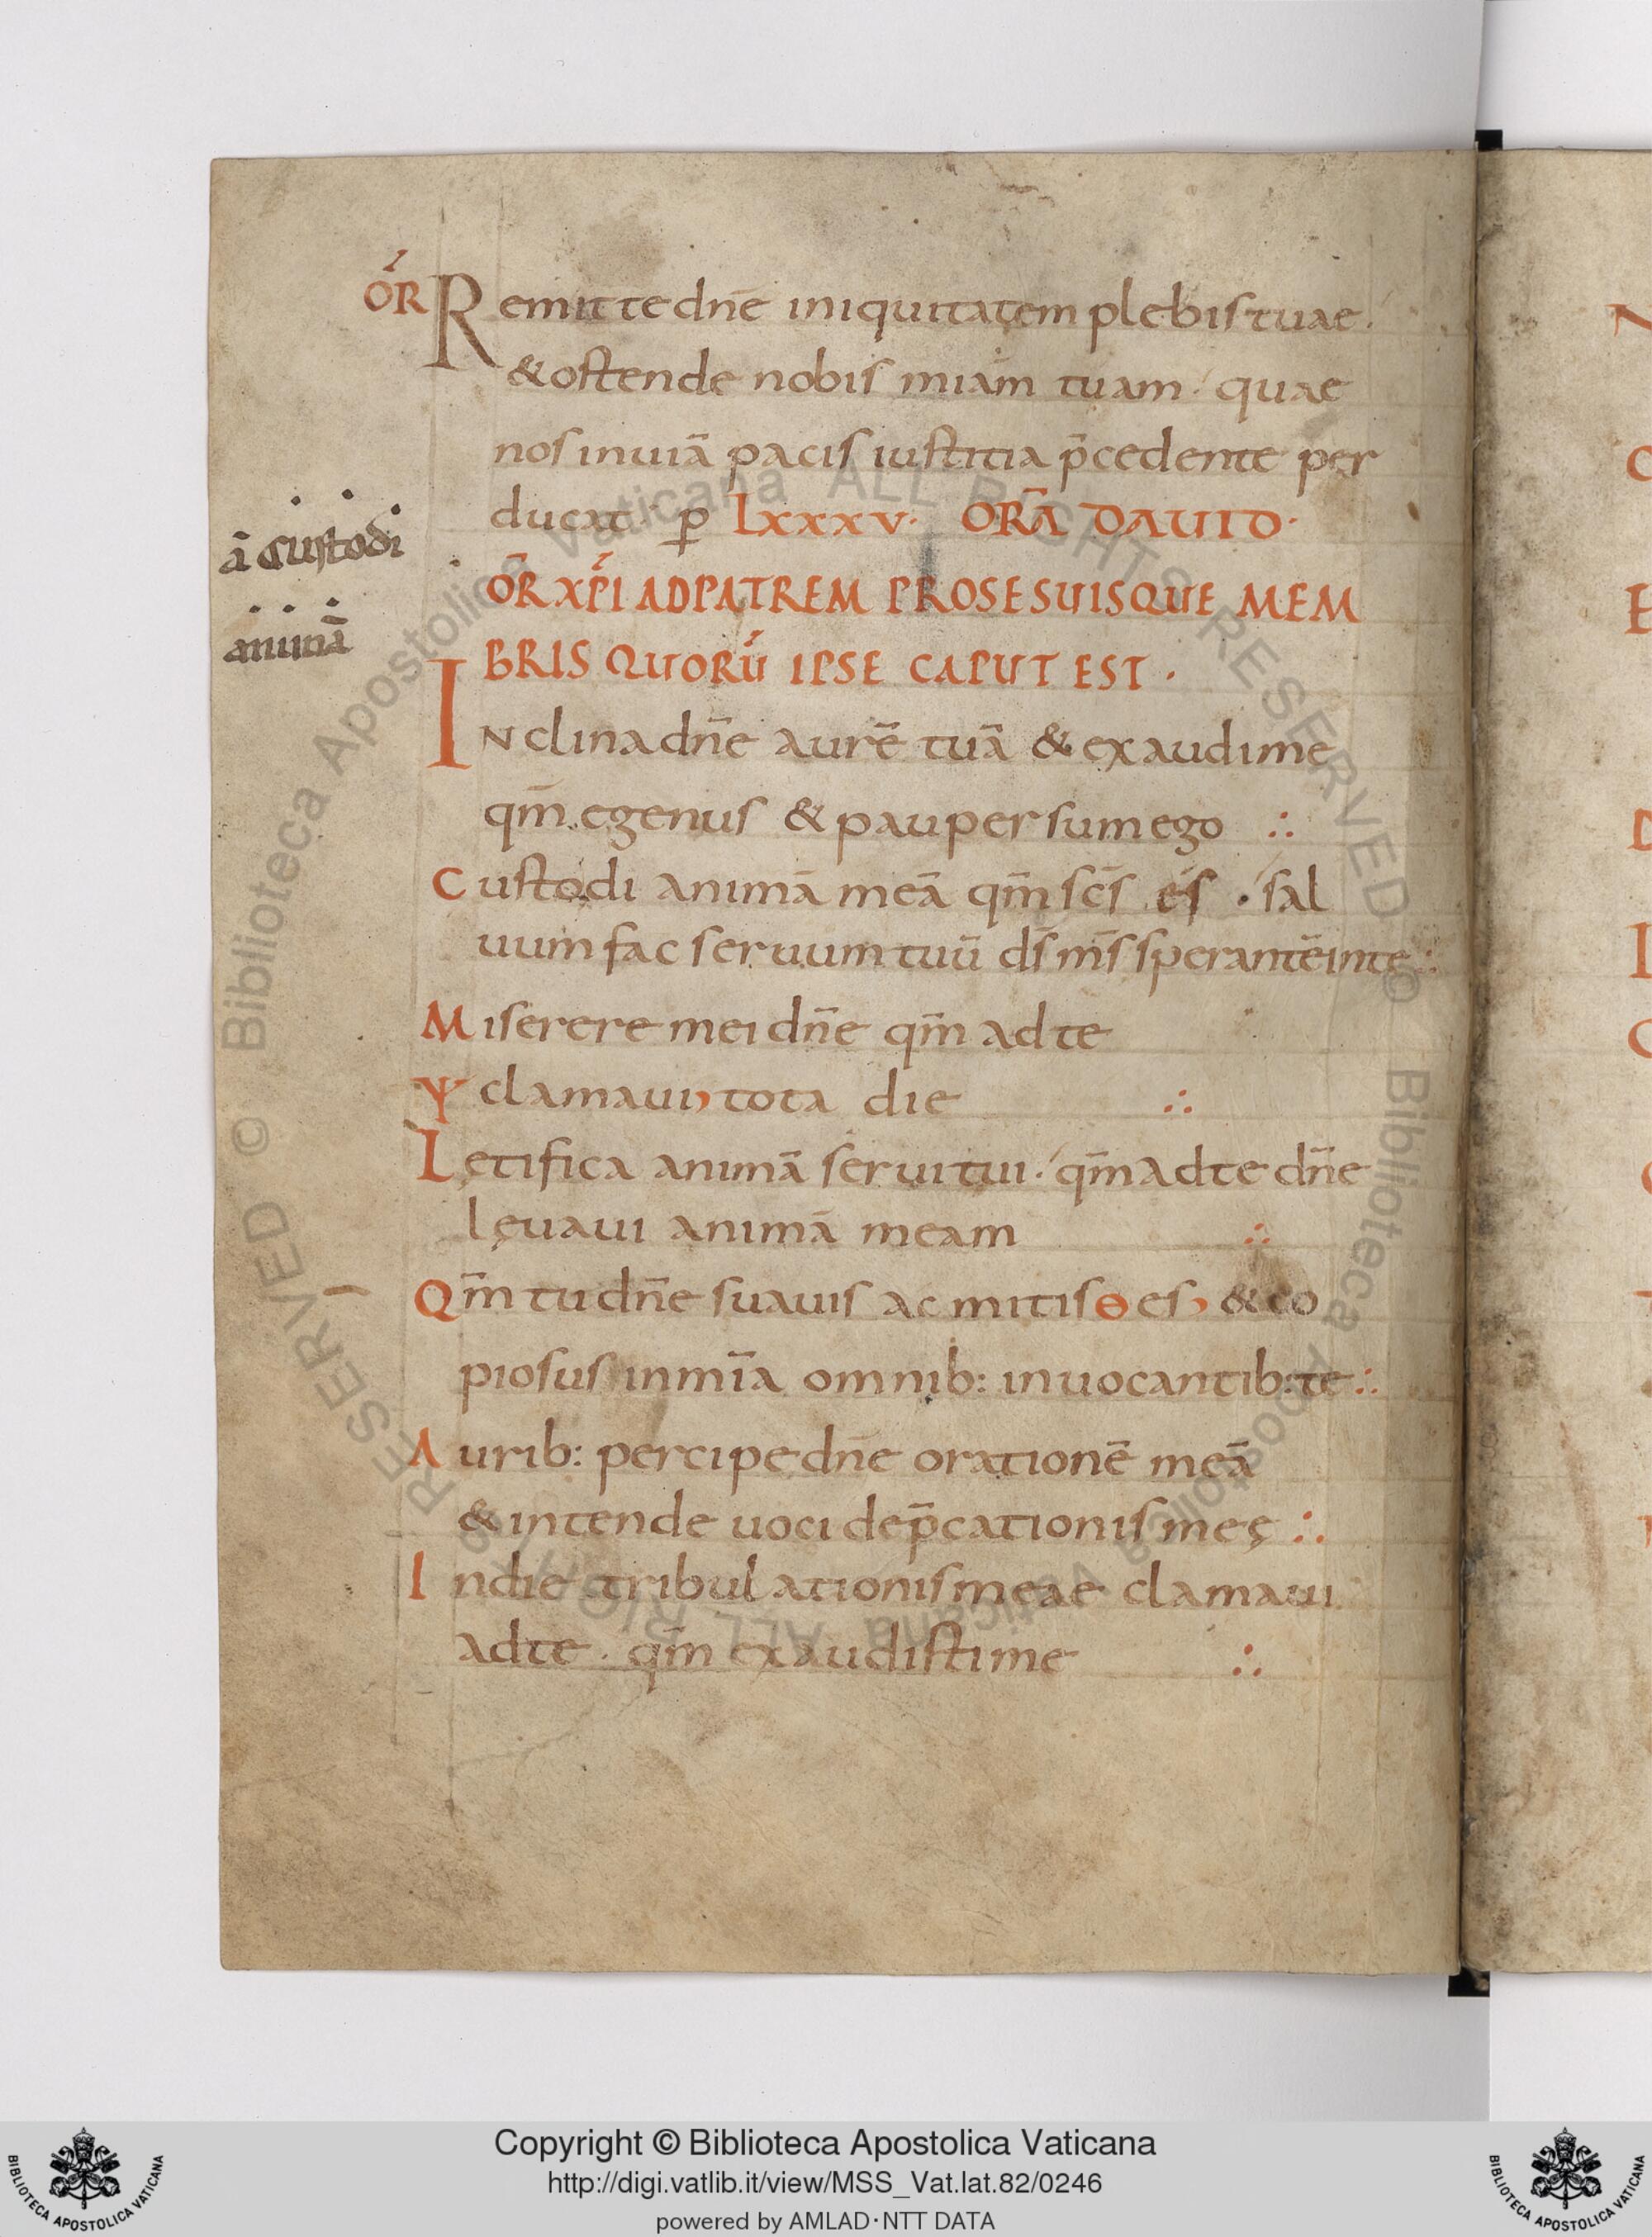 ŌR Remitte dn̄e iniquitatem plebis tuae.
& ostende nobis miam̄ tuam. quae
nos in uiā pacis iustitia p̄cedente per
ducat. p̄ LXXXV. ORΛ̄ DAUID.
ā custodi
animā
ŌR XP̄I AD PATREM PRO SE SUISQUE MEM
BRIS QUORŪ IPSE CAPUT EST.
INclina dn̄e aurē tuā & exaudi me
qm̄ egenus & pauper sum ego ∴
Custodi animā meā qm̄ sc̄s es. sal
uum fac seruum tuū ds̄ ms̄ sperantē in te ∴
Miserere mei dn̄e qm̄ ad te
Ψ clamaui, tota die ∴
Letifica animā serui tui. qm̄ ad te dn̄e
lęuaui animā meam ∴
Qm̄ tu dn̄e suauis ac mitis Θ es, & co
piosus in mīa omnib: inuocantib: te ∴
Aurib: percipe dn̄e orationē meā
& intende uoci dep̄cationis meę ∴
In die tribulationis meae clamaui
ad te. qm̄ exaudisti me ∴
© Biblioteca Apostolica Vaticana ALL RIGHTS RESERVED
© Biblioteca Apostolica Vaticana ALL RIGHTS RESERVED
Copyright © Biblioteca Apostolica Vaticana
http://digi.vatlib.it/view/MSS_Vat.lat.82/0246
powered by AMLAD·NTT DATA
BIBLIOTECA APOSTOLICA VATICANA
BIBLIOTECA APOSTOLICA VATICANA